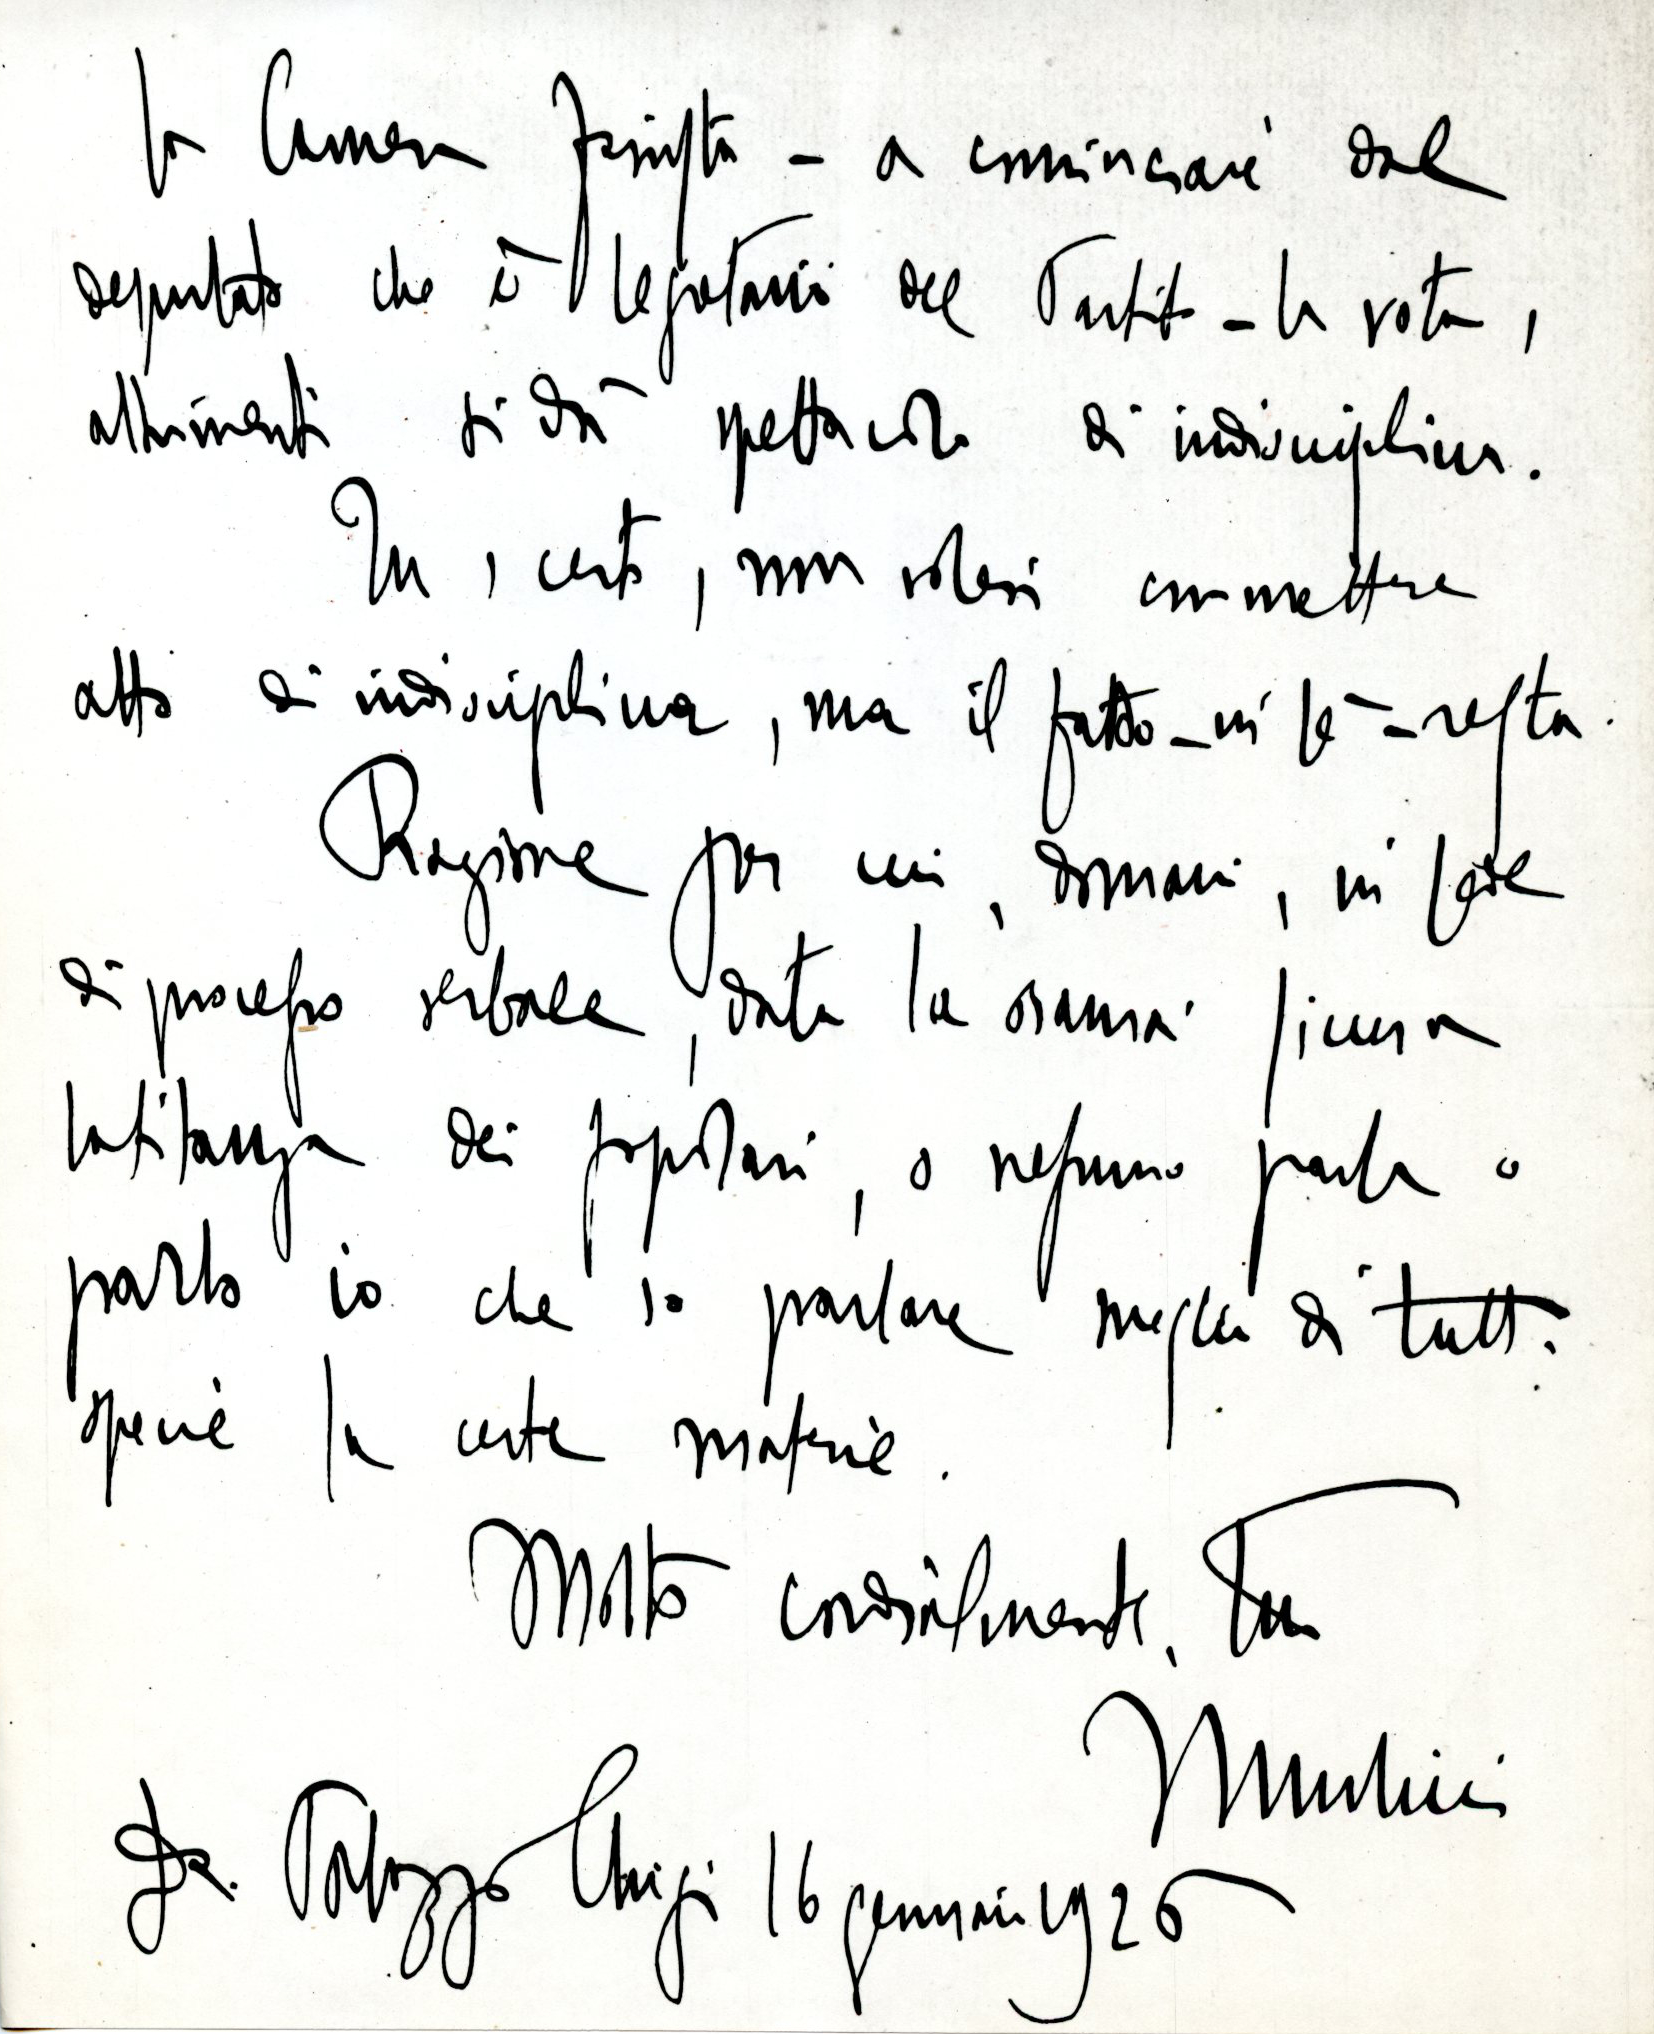 la Camera fascista - a cominciare dal
deputato che è Segretario del Partito - la vota,
altrimenti si dà spettacolo di indisciplina.
Tu, certo, non volevi commettere
atto di indisciplina, ma il fatto - in sè - resta.
Ragione per cui, domani, in sede
di processo verbale, data la oramai sicura
latitanza dei popolari, o nessuno parla o
parlo io che so parlare meglio di tutti
specie su certe materie.
Molto cordialmente, Tuo
Mussolini
Da Palazzo Chigi 16 gennaio 1926